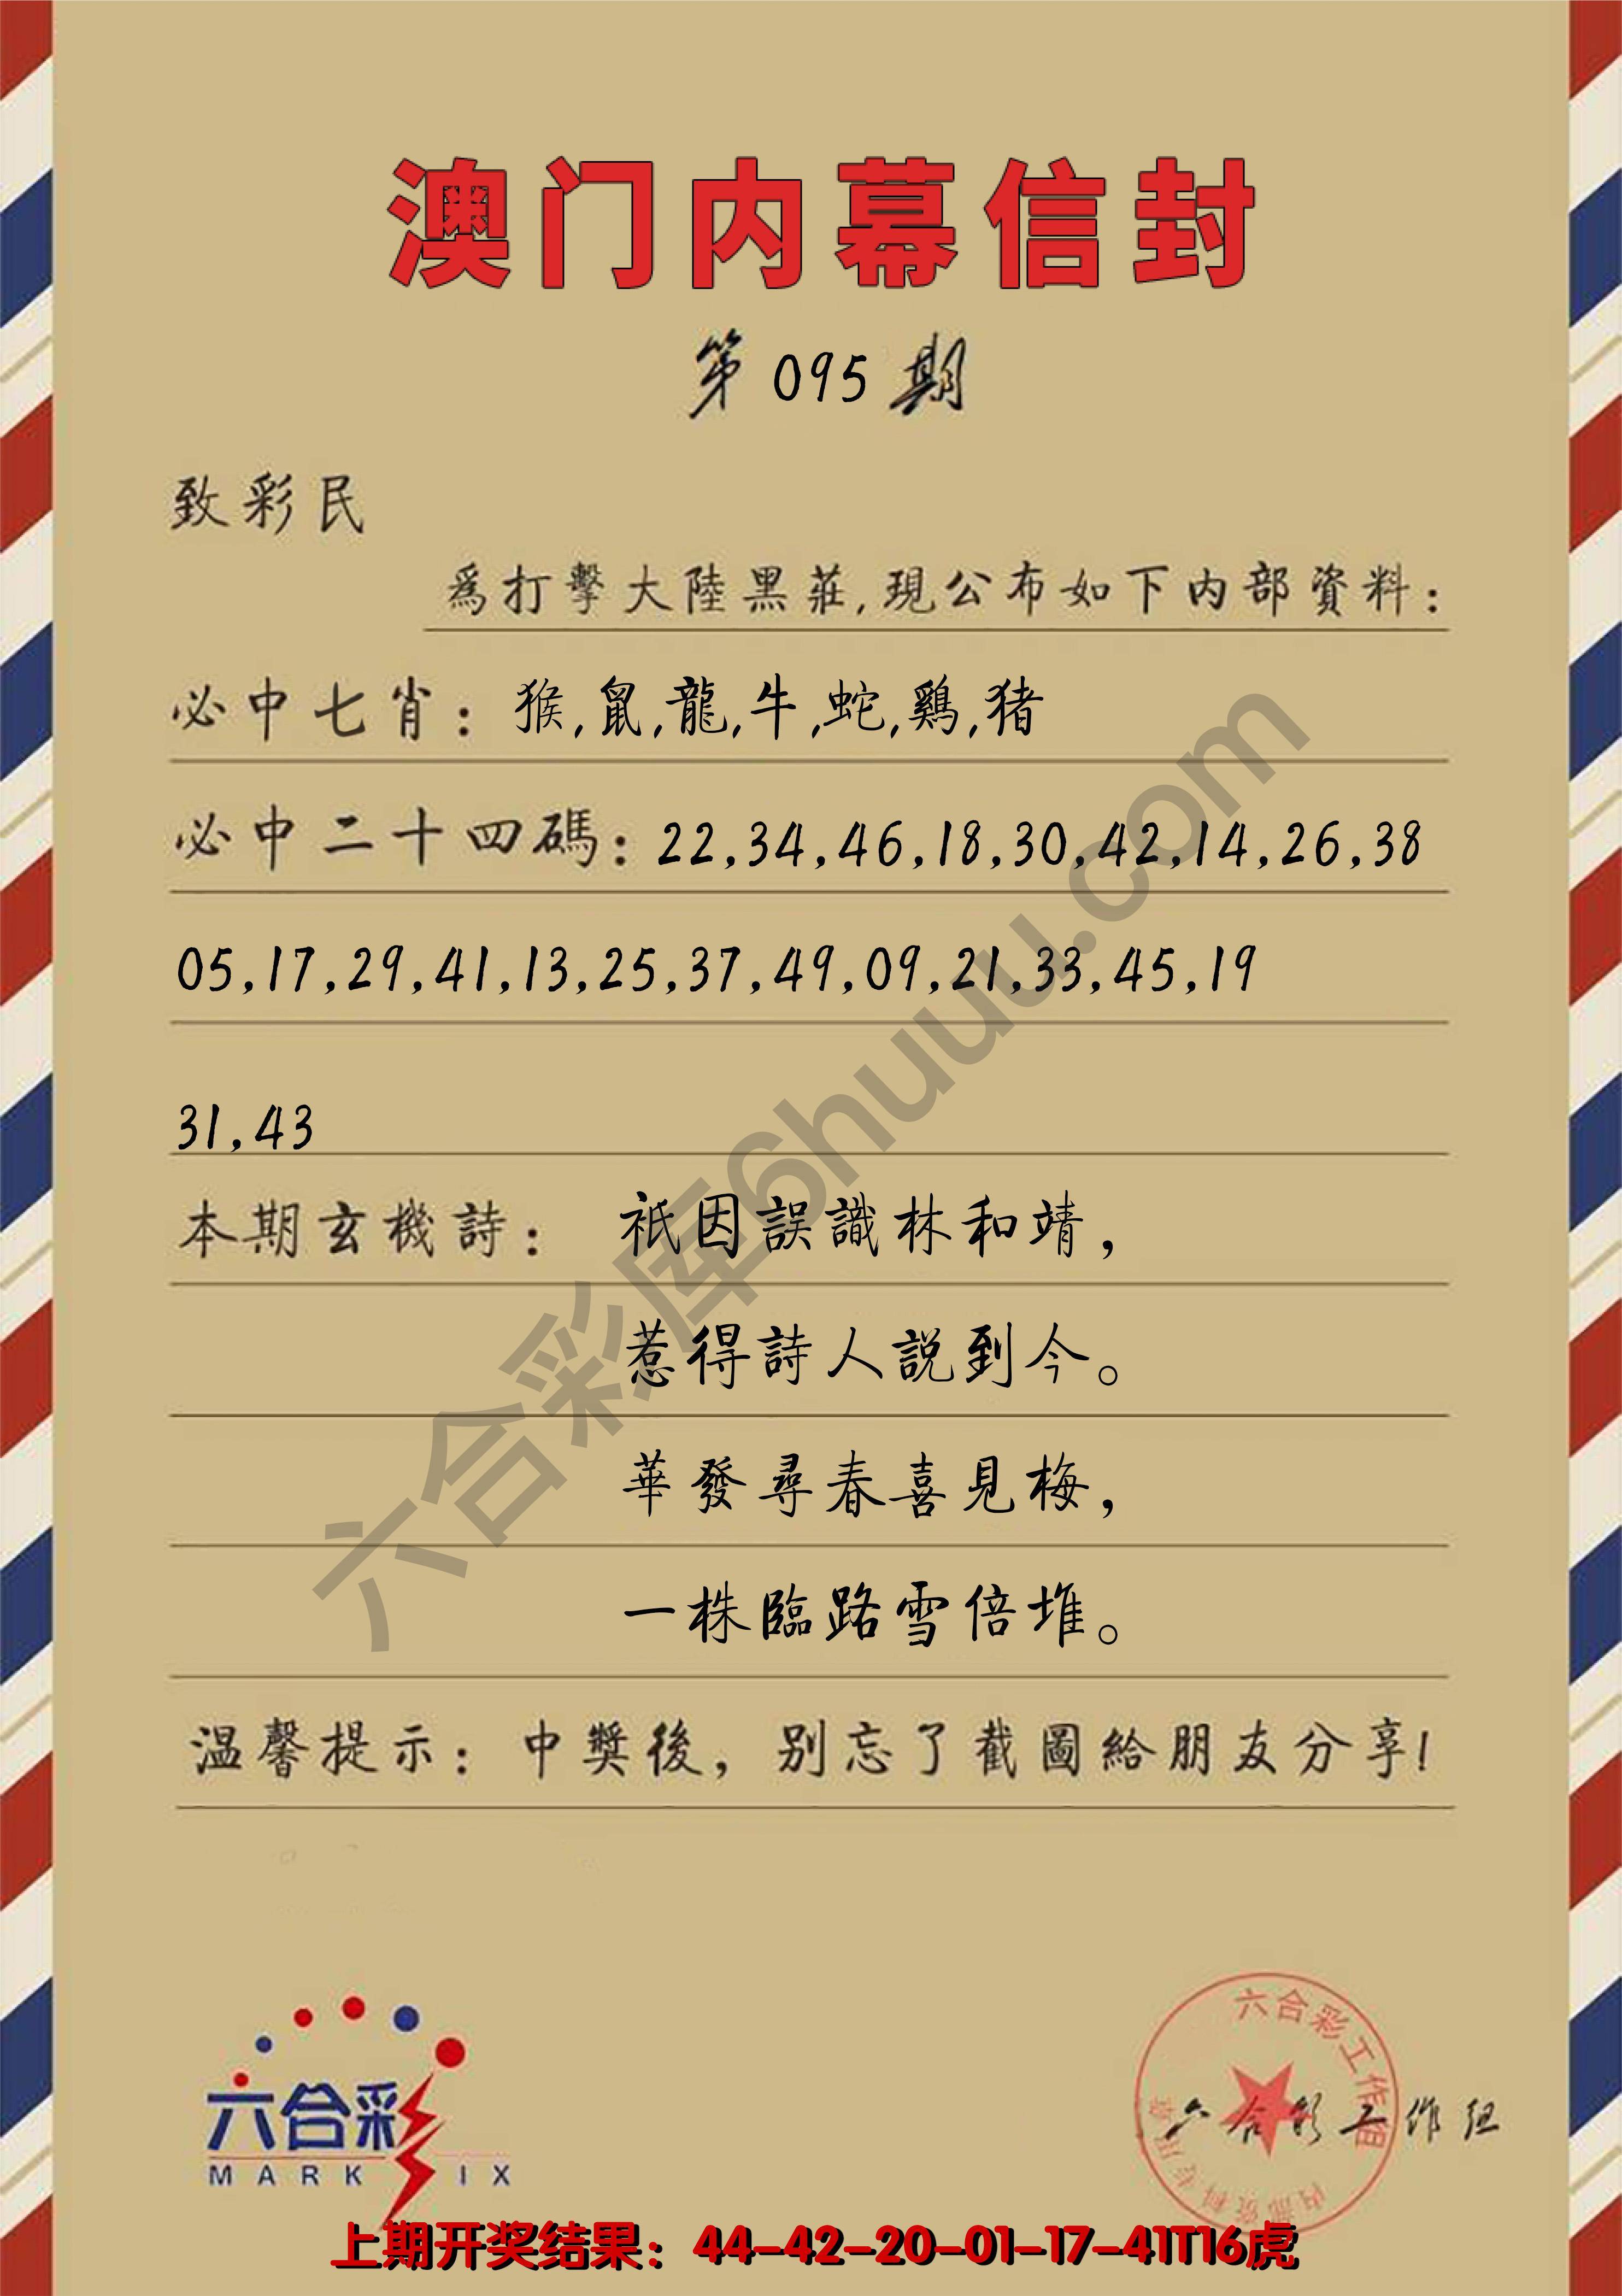 澳门内幕信封
第095期
致彩民
爲打擊大陸黑莊,現公布如下内部資料:
必中七肖: 猴,鼠,龍,牛,蛇,鷄,猪
必中二十四碼: 22,34,46,18,30,42,14,26,38
05,17,29,41,13,25,37,49,09,21,33,45,19
31,43
本期玄機詩: 祇因誤識林和靖,
惹得詩人説到今。
華發尋春喜見梅,
一株臨路雪倍堆。
温馨提示: 中獎後, 别忘了截圖給朋友分享!
六合彩库6huuu.com
六合彩
MARK IX
六合彩工作组
内部资料专用章
六合彩工作组
上期开奖结果: 44-42-20-01-17-41T16虎